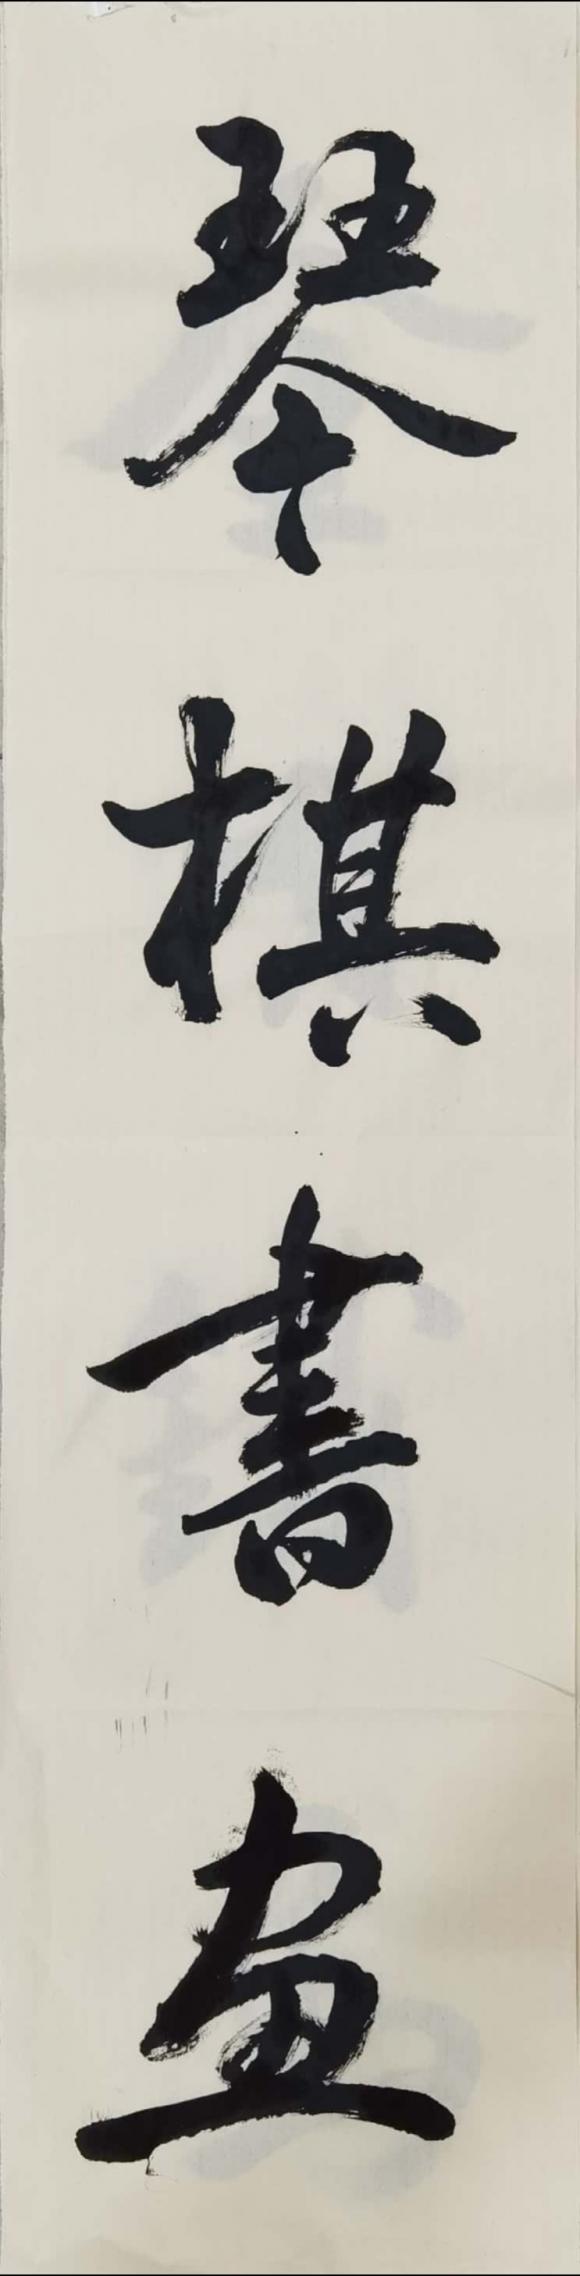 琴棋書畫